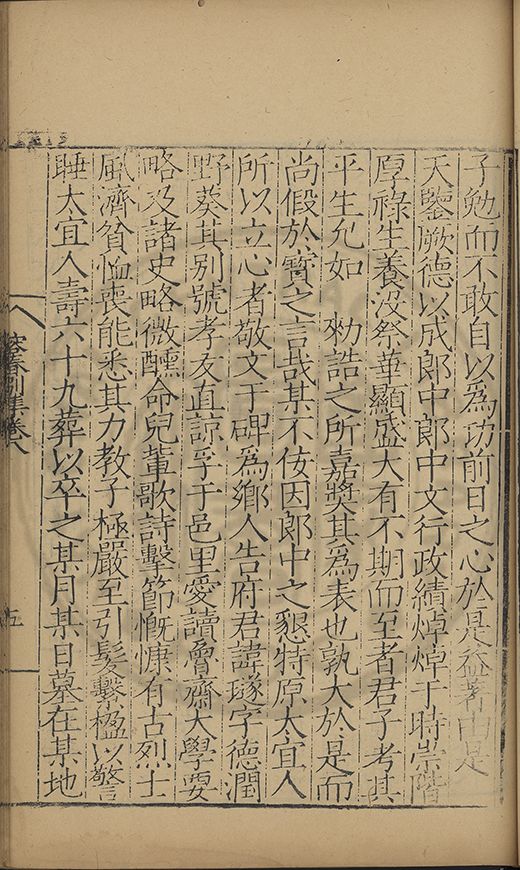 子勉而不敢自以爲功前日之心於是益著由是
天鑒厥德以成郎中郎中文行政績焯焯于時崇階
厚祿生養没祭華顯盛大有不期而至者君子考其
平生允如　勑誥之所嘉奬其爲表也孰大於是而
尚假於賓之言哉某不佞因郎中之懇特原太宜人
所以立心者敬文于碑爲鄉人告府君諱璲字德潤
野葵其別號孝友直諒孚于邑里愛讀魯齋大學要
略及諸史略微醺命兒輩歌詩擊節慨慷有古烈士
風濟貧恤喪能悉其力教子極嚴至引髮繫楹以警
睡太宜人壽六十九葬以卒之某月某日墓在某地
別集卷八
五